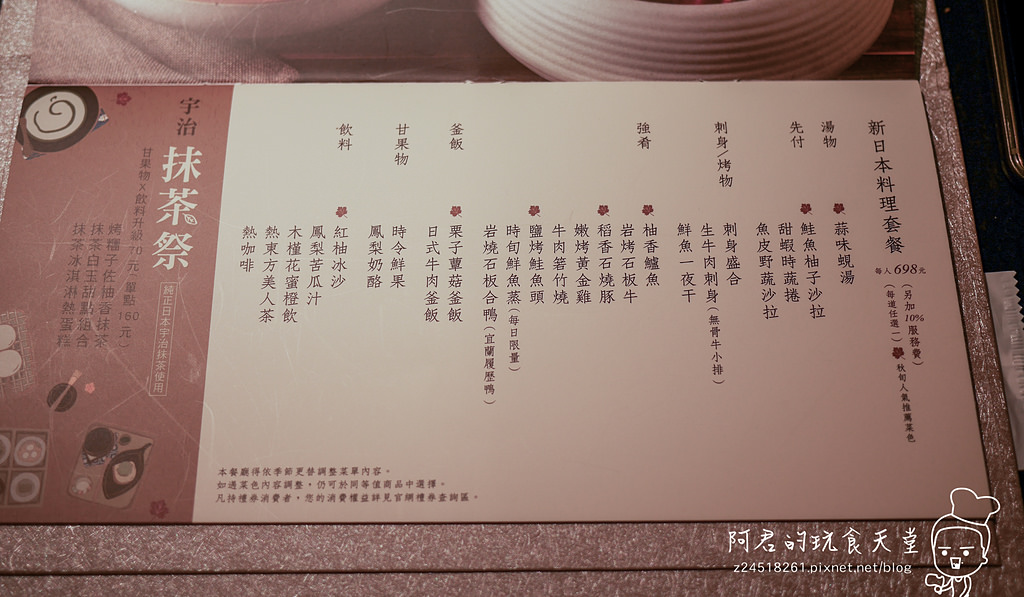 新日本料理套餐
每人 698元
(另加10%服務費)
(每道任選一)
秋旬人氣推薦菜色
湯物
蒜味蜆湯
先付
鮭魚柚子沙拉
甜蝦時蔬捲
魚皮野蔬沙拉
刺身/烤物
刺身盛合
生牛肉刺身(無骨牛小排)
鮮魚一夜干
強肴
柚香鱸魚
岩烤石板牛
稻香石燒豚
嫩烤黃金雞
牛肉箬竹燒
鹽烤鮭魚頭
時旬鮮魚蒸(每日限量)
岩燒石板合鴨(宜蘭履歷鴨)
釜飯
栗子蕈菇釜飯
日式牛肉釜飯
甘果物
時令鮮果
鳳梨奶酪
飲料
紅柚冰沙
鳳梨苦瓜汁
木槿花蜜橙飲
熱東方美人茶
熱咖啡
本餐廳得依季節更替調整菜單內容。
如遇菜色內容調整,仍可於同等值商品中選擇。
凡持禮券消費者,您的消費權益詳見官網禮券查詢區。
宇治
抹茶祭
純正日本宇治抹茶使用
甘果物X飲料升級70元(單點160元)
烤糰子佐柚香抹茶
抹茶白玉甜點組合
抹茶冰淇淋熱蛋糕
阿君的玩食天堂
z24518261.pixnet.net/blog